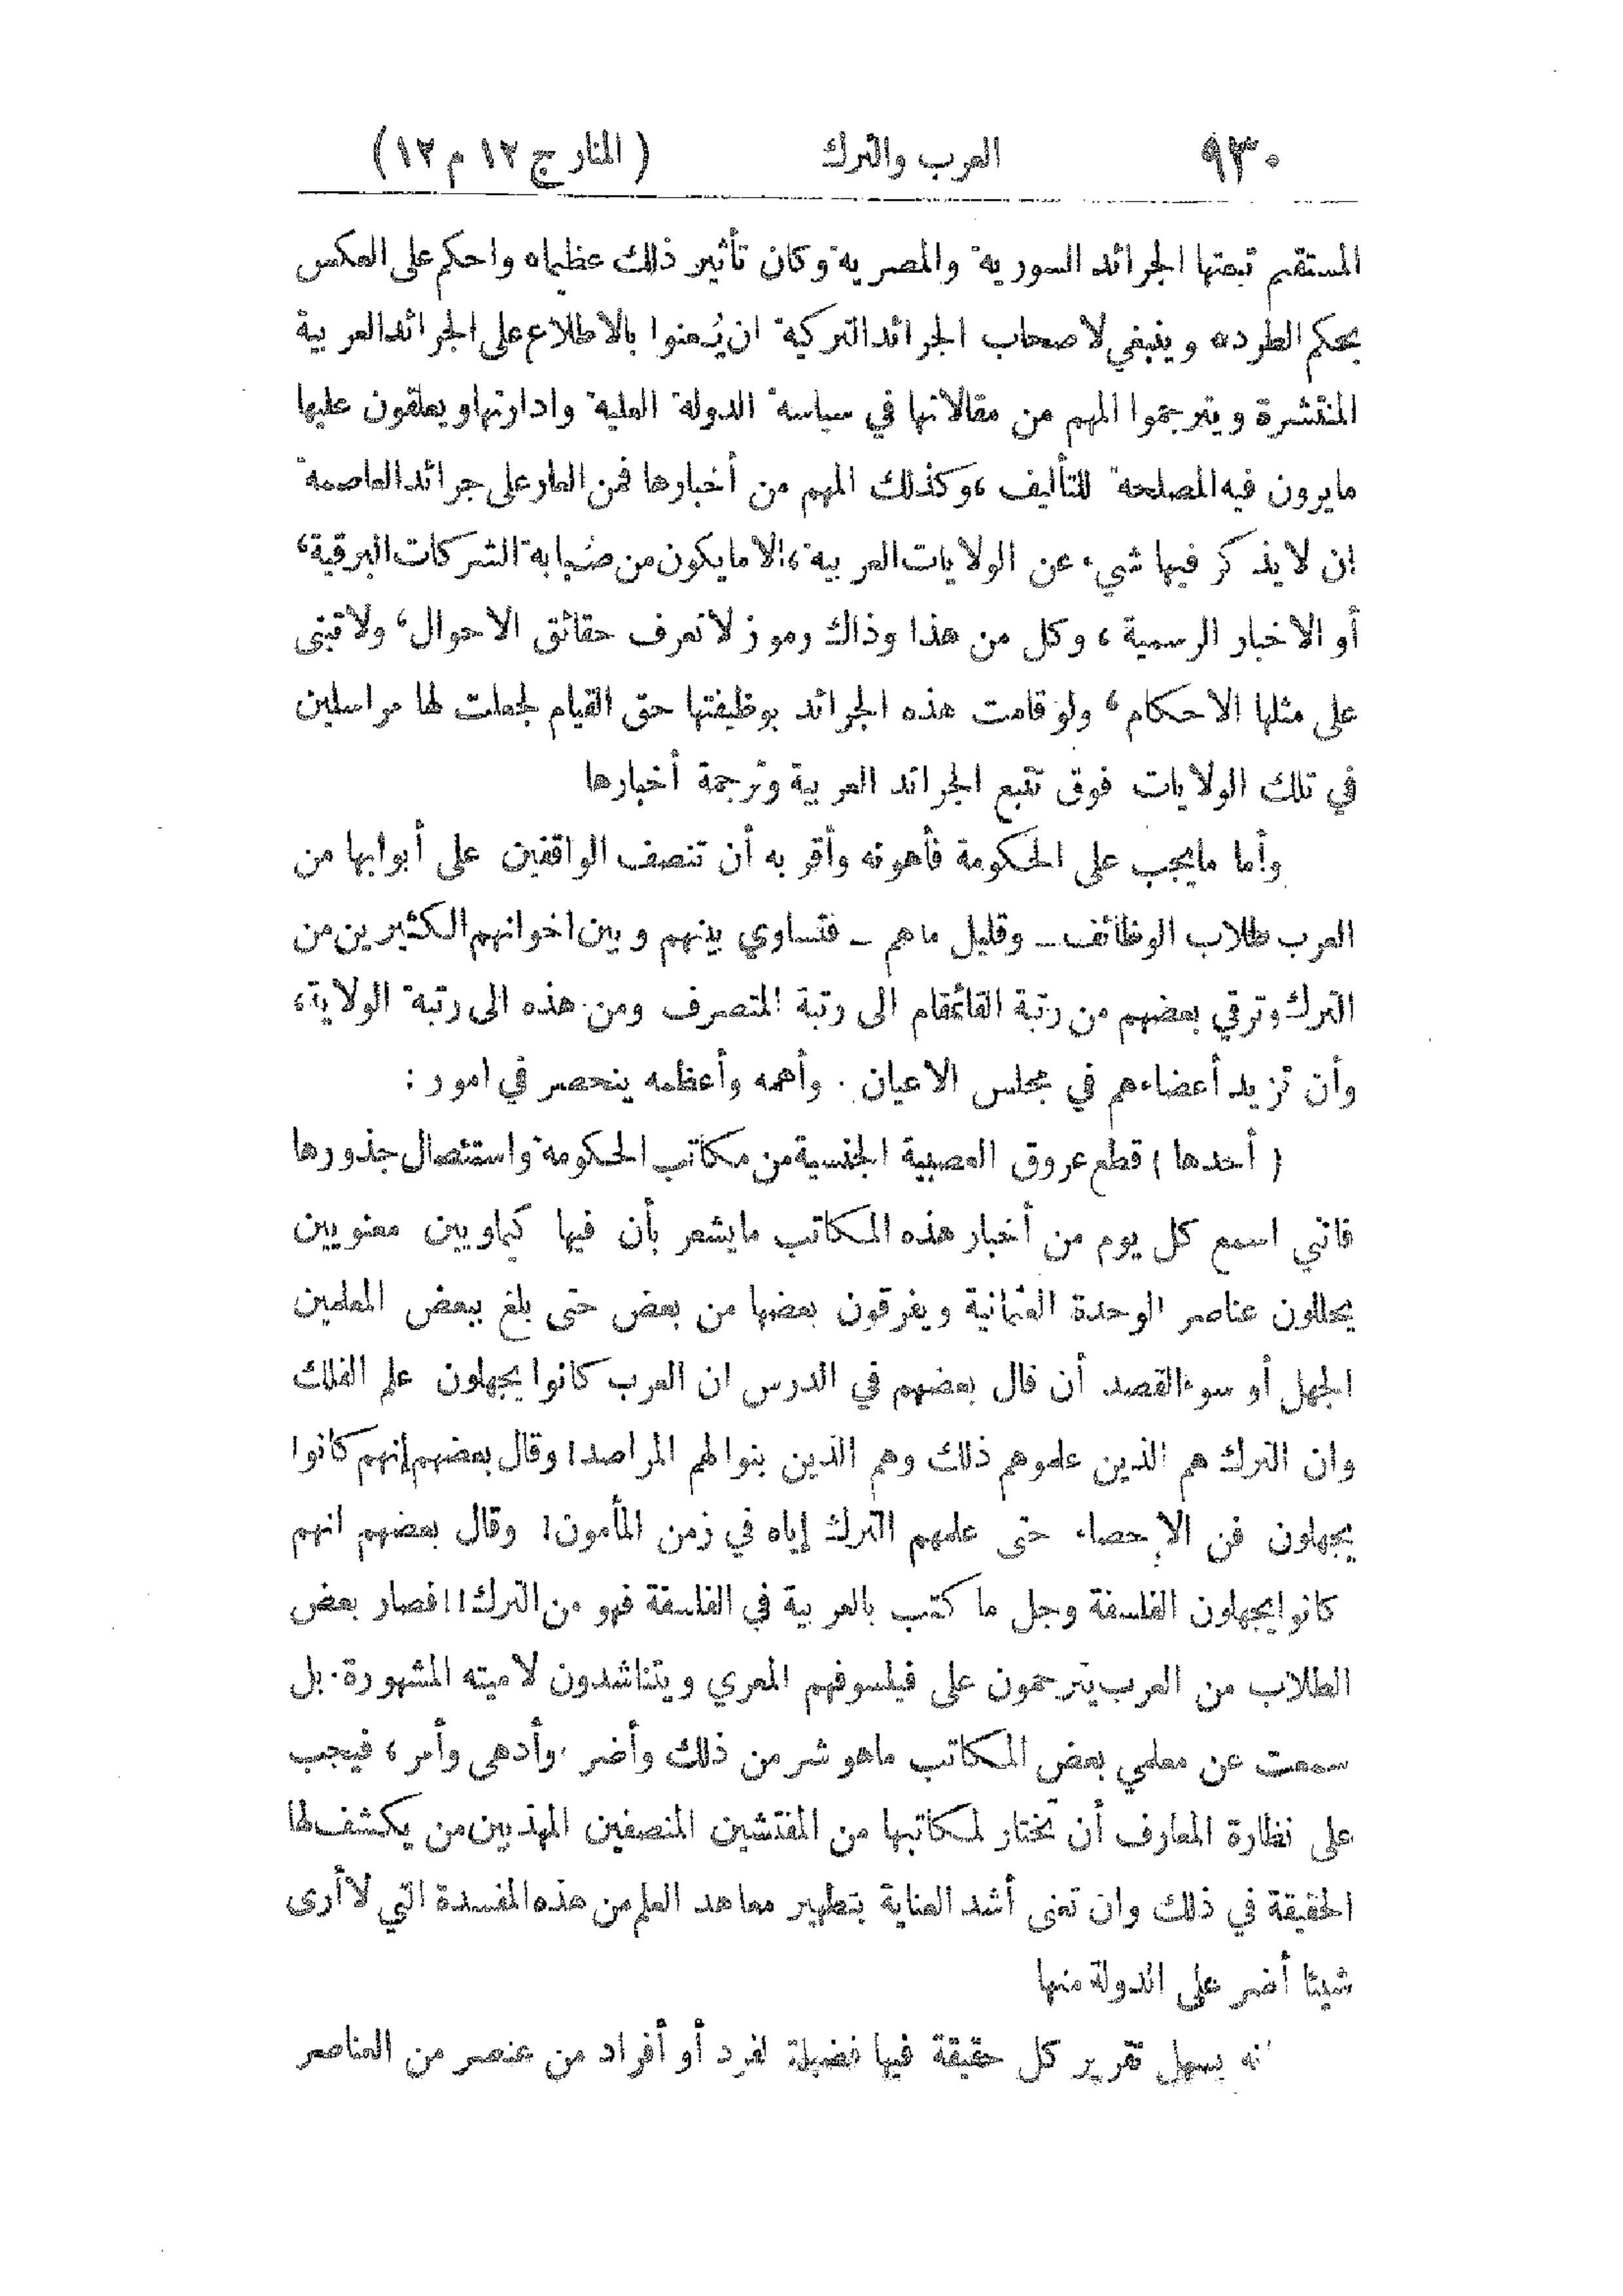 ٩٣٠ العرب والترك ( المنار ج ١٢ م ١٢ )
المستقيم تبعتها الجرائد السورية والمصرية وكان تأثير ذلك عظيما، واحكم على العكس
بحكم الطرد، وينبغي لاصحاب الجرائد التركية ان يُعنوا بالاطلاع على الجرائد العربية
المنتشرة ويترجموا المهم من مقالاتها في سياسة الدولة العلية وادارتها ويعلقون عليها
مايرون فيه المصلحة للتأليف ، وكذلك المهم من أخبارها فمن العار على جرائد العاصمة
ان لايذكر فيها شيء عن الولايات العربية ، الا مايكون من صُبابة الشركات البرقية ،
أو الاخبار الرسمية ، وكل من هذا وذاك رموز لاتعرف حقائق الاحوال ، ولا تبنى
على مثلها الاحكام ، ولو قامت هذه الجرائد بوظيفتها حق القيام لجعلت لها مراسلين
في تلك الولايات فوق تتبع الجرائد العربية وترجمة أخبارها
وأما مايجب على الحكومة فأهونه وأقربه أن تنصف الواقفين على أبوابها من
العرب طلاب الوظائف ـ وقليل ماهم ـ فتساوي بينهم وبين اخوانهم الكثيرين من
الترك وترقي بعضهم من رتبة القائمقام الى رتبة المتصرف ومن هذه الى رتبة الولاية ،
وأن تزيد أعضاءهم في مجلس الاعيان . وأهمه وأعظمه ينحصر في امور :
( أحدها ) قطع عروق العصبية الجنسية من مكاتب الحكومة واستئصال جذورها
فانني اسمع كل يوم من أخبار هذه المكاتب مايشعر بأن فيها كيماويين معنويين
يحللون عناصر الوحدة العثمانية ويفرقون بعضها من بعض حتى بلغ ببعض المعلمين
الجهل أو سوء القصد أن قال بعضهم في الدرس ان العرب كانوا يجهلون علم الفلك
وان الترك هم الذين علموهم ذلك وهم الذين بنوا لهم المراصد! وقال بعضهم إنهم كانوا
يجهلون فن الإحصاء حتى علمهم الترك إياه في زمن المأمون! وقال بعضهم انهم
كانوا يجهلون الفلسفة وجل ما كتب بالعربية في الفلسفة فهو من الترك!! فصار بعض
الطلاب من العرب يترحمون على فيلسوفهم المعري ويتناشدون لاميته المشهورة . بل
سمعت عن معلمي بعض المكاتب ماهو شر من ذلك وأضر ، وأدهى وأمر ، فيجب
على نظارة المعارف أن تختار لمكاتبها من المفتشين المنصفين المهذبين من يكشف لها
الحقيقة في ذلك وان تعنى أشد العناية بتطهير معاهد العلم من هذه المفسدة التي لا أرى
شيئا أضر على الدولة منها
انه يسهل تقرير كل حقيقة فيها فضيلة لفرد أو أفراد من عنصر من العناصر